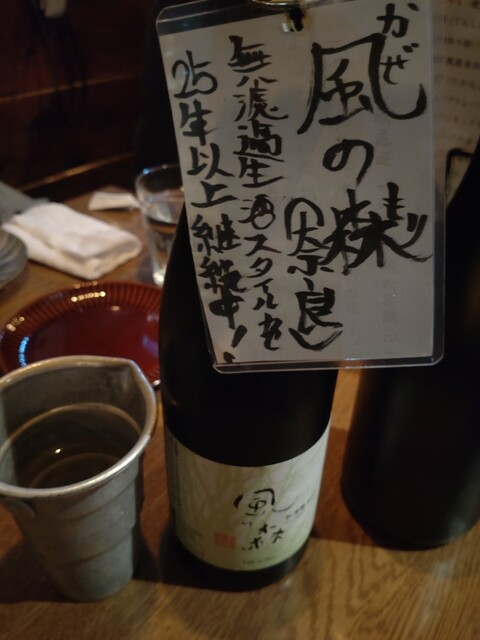 かぜ
風の森
もり
(奈良)
無濾過生酒スタイルを
25年以上継続中!
風の森